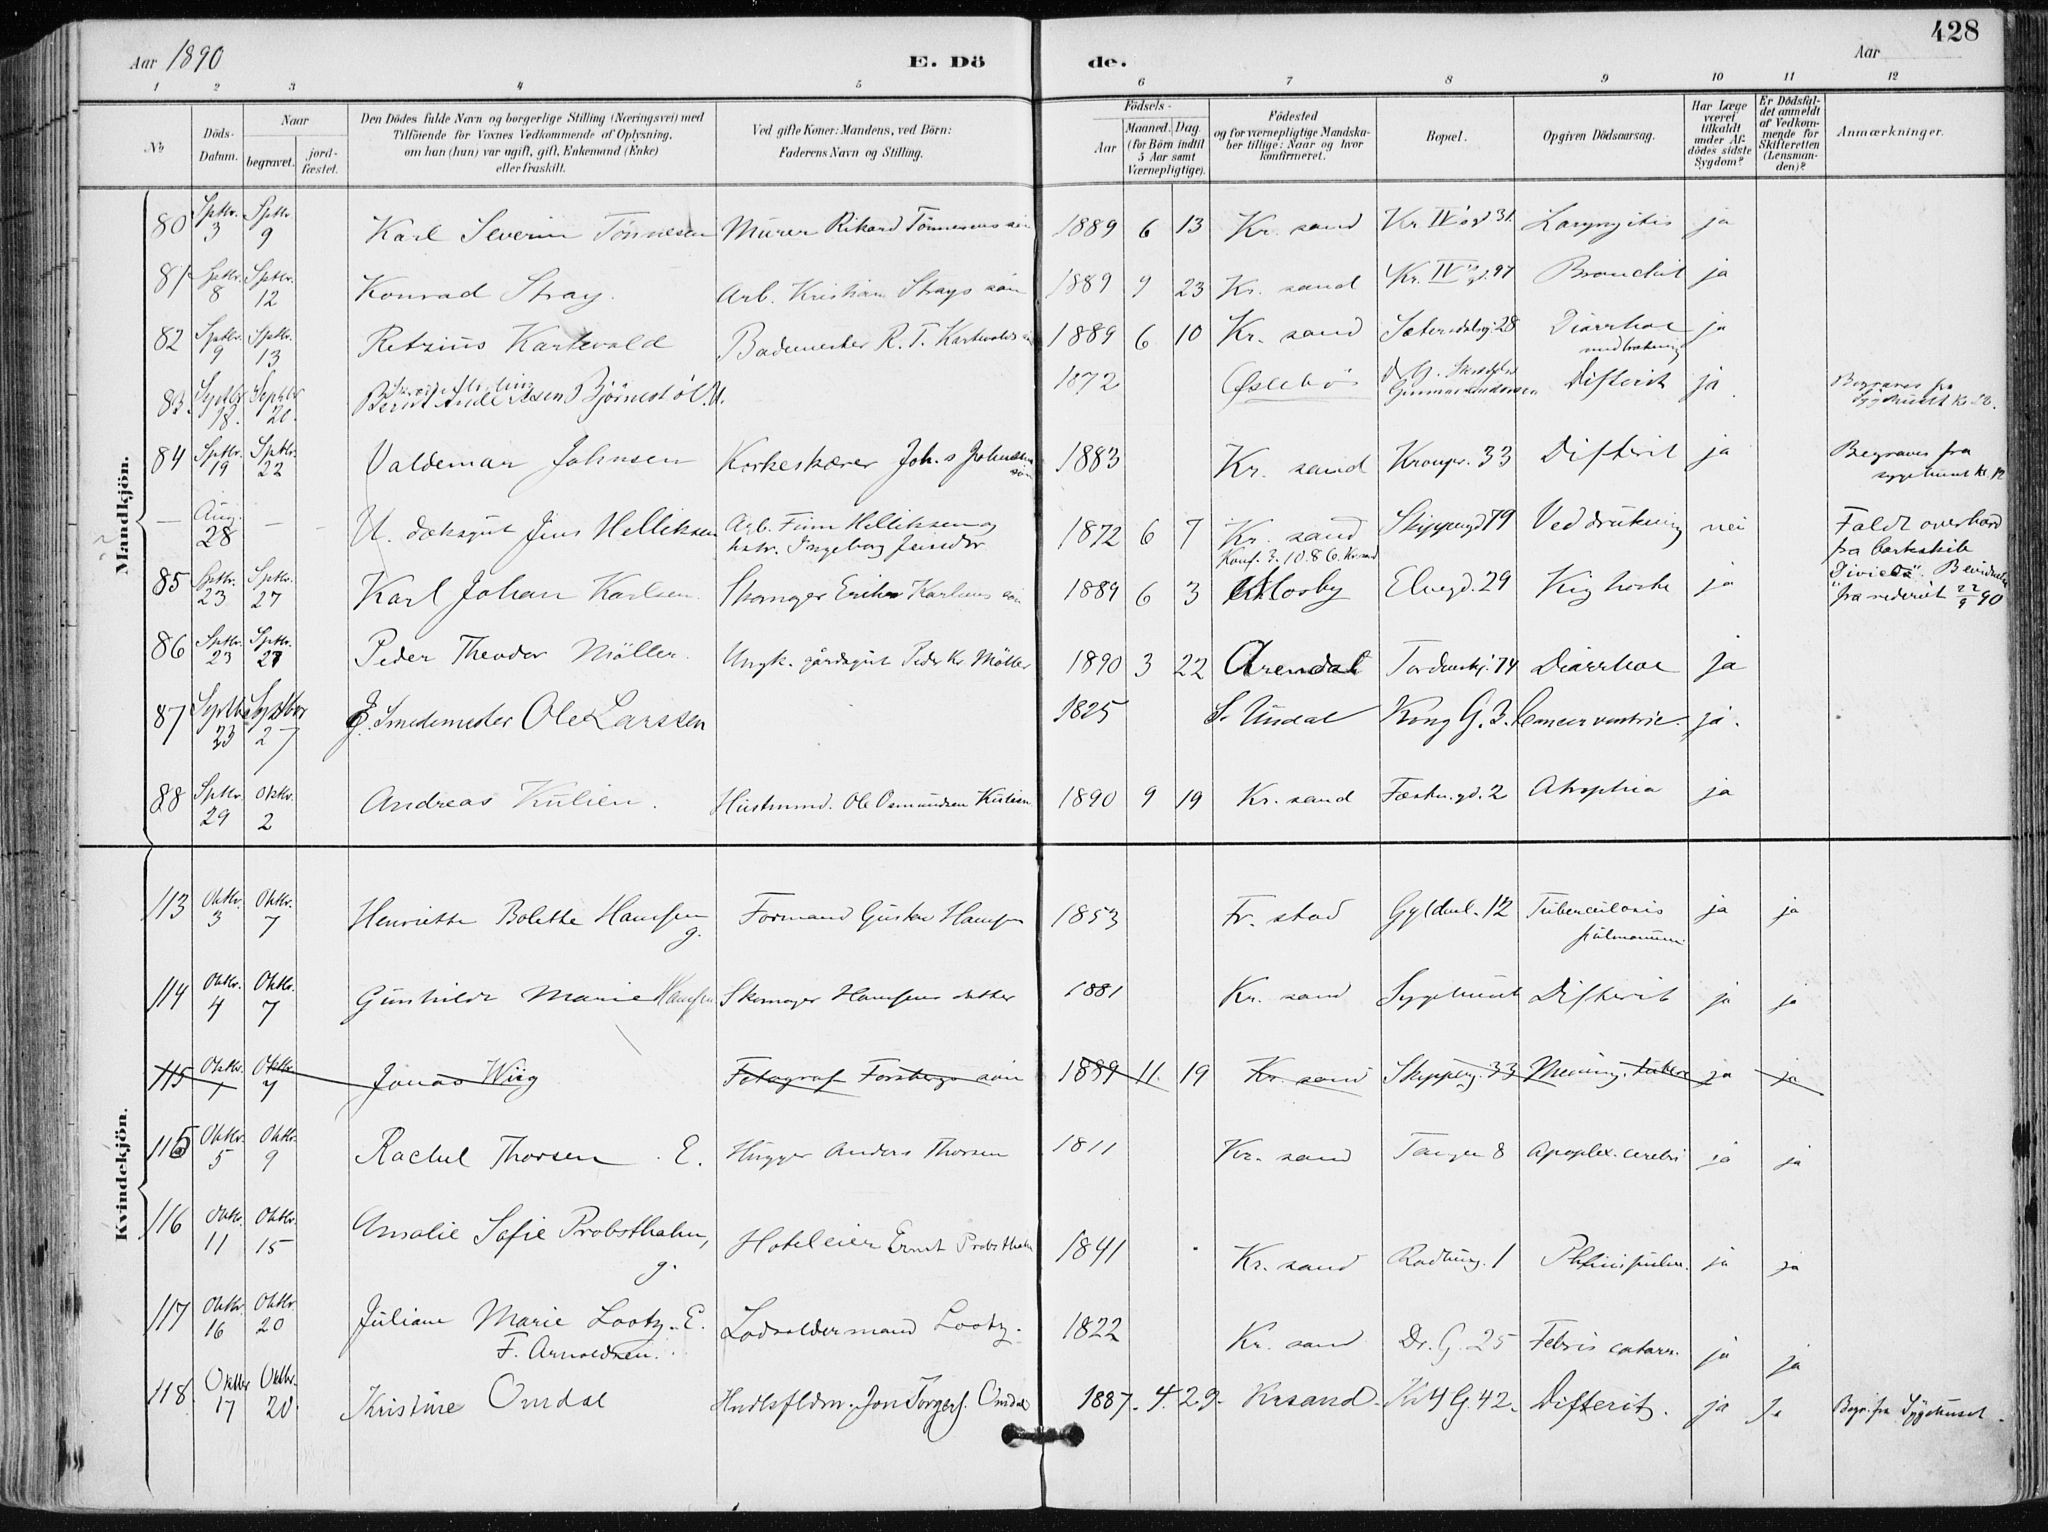 428
Aar 1890
E. Dö
de.
Aar
1 2 3 4 5 6 7 8 9 10 11 12
No
Döds-Datum.
Naar
begravet.
jord-fæstet.
Den Dödes fulde Navn og borgerlige Stilling (Næringsvei) med
Tilföiende for Voxnes Vedkommende af Oplysning,
om han (hun) var ugift, gift, Enkemand (Enke)
eller fraskilt.
Ved gifte Koner: Mandens, ved Börn:
Faderens Navn og Stilling.
Födsels-
Aar
Maaned. Dag.
(for Börn indtil
5 Aar samt
Værnepligtige).
Födested
og for værnepligtige Mandska-
ber tillige: Naar og hvor
konfirmeret.
Bopæl.
Opgiven Dödsaarsag.
Har Læge
været
tilkaldt
under Af-
dödes sidste
Sygdom?
Er Dödsfal-
det anmeldt
af Vedkom-
mende for
Skifteretten
(Lensman-
den)?
Anmærkninger.
Mandkjön.
80 Sptbr. 3 Sptbr. 9 Karl Severin Tönnesen Murer Rikard Tönnesens sön 1889 6 13 Kr. sand Kr. IV's gd 31. Laryngitis ja
81 Sptbr. 8 Sptbr. 12 Konrad Stray. Arb. Kristian Strays sön 1889 9 23 Kr. sand Kr. IV's gd. 97 Bronchit ja
82 Sptbr. 9 Sptbr. 13 Retzius Kartevold Bademester R. T. Kartevolds 1889 6 10 Kr. sand Sætersdalsg. 28 Diarrhoe ja
83 Septbr 18. Septbr 20. Bernt Andersen Bjørnestöl. U. 1872 Øslebö Difterit ja. Begraves fra
Sygehuset Kr. 12.
84 Sptbr. 19 Sptbr. 22 Valdemar Johnsen Korkeskærer Joh.s Johnsens sön 1883 Kr. sand Kronpr. 33 Difterit ja Begraves fra
sygehuset kr. 12
— Aug. 28 — - U. dæksgut Jens Helliksen Arb. Finn Helliksen og
hstr. Ingeborg Jensdtr 1872 6 7 Kr. sand
Konf. 3.10.86. Kr. sand Skippergd 79 Ved drukning nei Faldt overbord
fra barkskib
85 Sptbr. 23 Sptbr. 27 Karl Johan Karlsen Skomager Eriks Karlsens sön 1889 6 3 Mosby Elvegd. 29 Kighoste ja
fra rederiet 22/9 90
86 Sptbr. 23 Sptbr. 27 Peder Theodor Möller. Ungk. gårdsgut Peder Kr. Möller 1890 3 22 Arendal Tordenskj. 74 Diarrhoe ja
87 Septbr 23 Septbr 27 Smedemester Ole Larssen 1825 S. Undal Kong G. 3. Cancer ventric. ja.
88 Sptbr. 29 Oktbr. 2 Andreas Kulien. Hustmand. Ole Osmundsen Kulien 1890 9 19 Kr. sand Fæstn. gd. 2 Atrophia ja
Kvindekjön.
113 Oktbr. 3 Oktbr. 7 Henriette Bolette Hansen
g. Formand Gustav Hansen 1853 Fr. stad Gyldenl. 12 Tuberculosis
pulmonum ja ja
114 Oktbr. 4 Oktbr. 7 Gunhilde Marie Hansen Skomager Hansens datter 1881 Kr. sand Sygehuset Difterit ja ja
115 Oktbr. 1 Oktbr. 7 Jonas Wiig Fotograf Forsbergs sön 1889 11 19 Kr. sand Skipperg. 33 Mening. tuberc ja ja
115 Oktbr. 5 Oktbr. 9 Rachel Thorsen E. Hugger Anders Thorsen 1811 Kr. sand Tangen 8 Apoplex. cerebri ja ja
116 Oktbr. 11 Oktbr. 15 Amalie Sofie Probsthahn,
g. Hoteleier Ernst Probsthahn 1841 Kr. sand Raadhusg. 1 Phtisis pulm. ja ja
117 Oktbr. 16 Oktbr. 20 Juliane Marie Lootz. E.
F. Arnoldsen. Lodsoldermand Lootz. 1822 Kr. sand Dr. G. 25 Febris catarr. ja ja
118. Oktbr 17 Oktbr. 20. Kristine Omdal Hndlsfldm. Jon Torgers. Omdal 1887. 4. 29. Krsand. Kr 4 G. 42. Difterit. ja Ja Begr. fra Sygehuset.